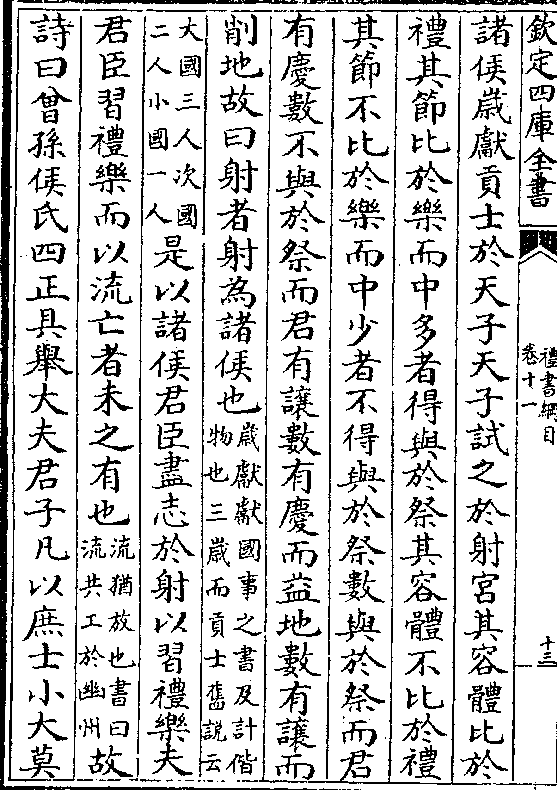 欽定四庫全書
禮書綱目
卷十一
十三
諸侯歲獻貢士於天子天子試之於射宮其容體比於
禮其節比於樂而中多者得與於祭其容體不比於禮
其節不比於樂而中少者不得與於祭數與於祭而君
有慶數不與於祭而君有讓數有慶而益地數有讓而
削地故曰射者射為諸侯也
歲獻獻國事之書及計偕
物也三歲而貢士舊說云
大國三人次國
二人小國一人
是以諸侯君臣盡志於射以習禮樂夫
君臣習禮樂而以流亡者未之有也
流猶放也書曰
流共工於幽州
故
詩曰曾孫侯氏四正具舉大夫君子凡以庶士小大莫